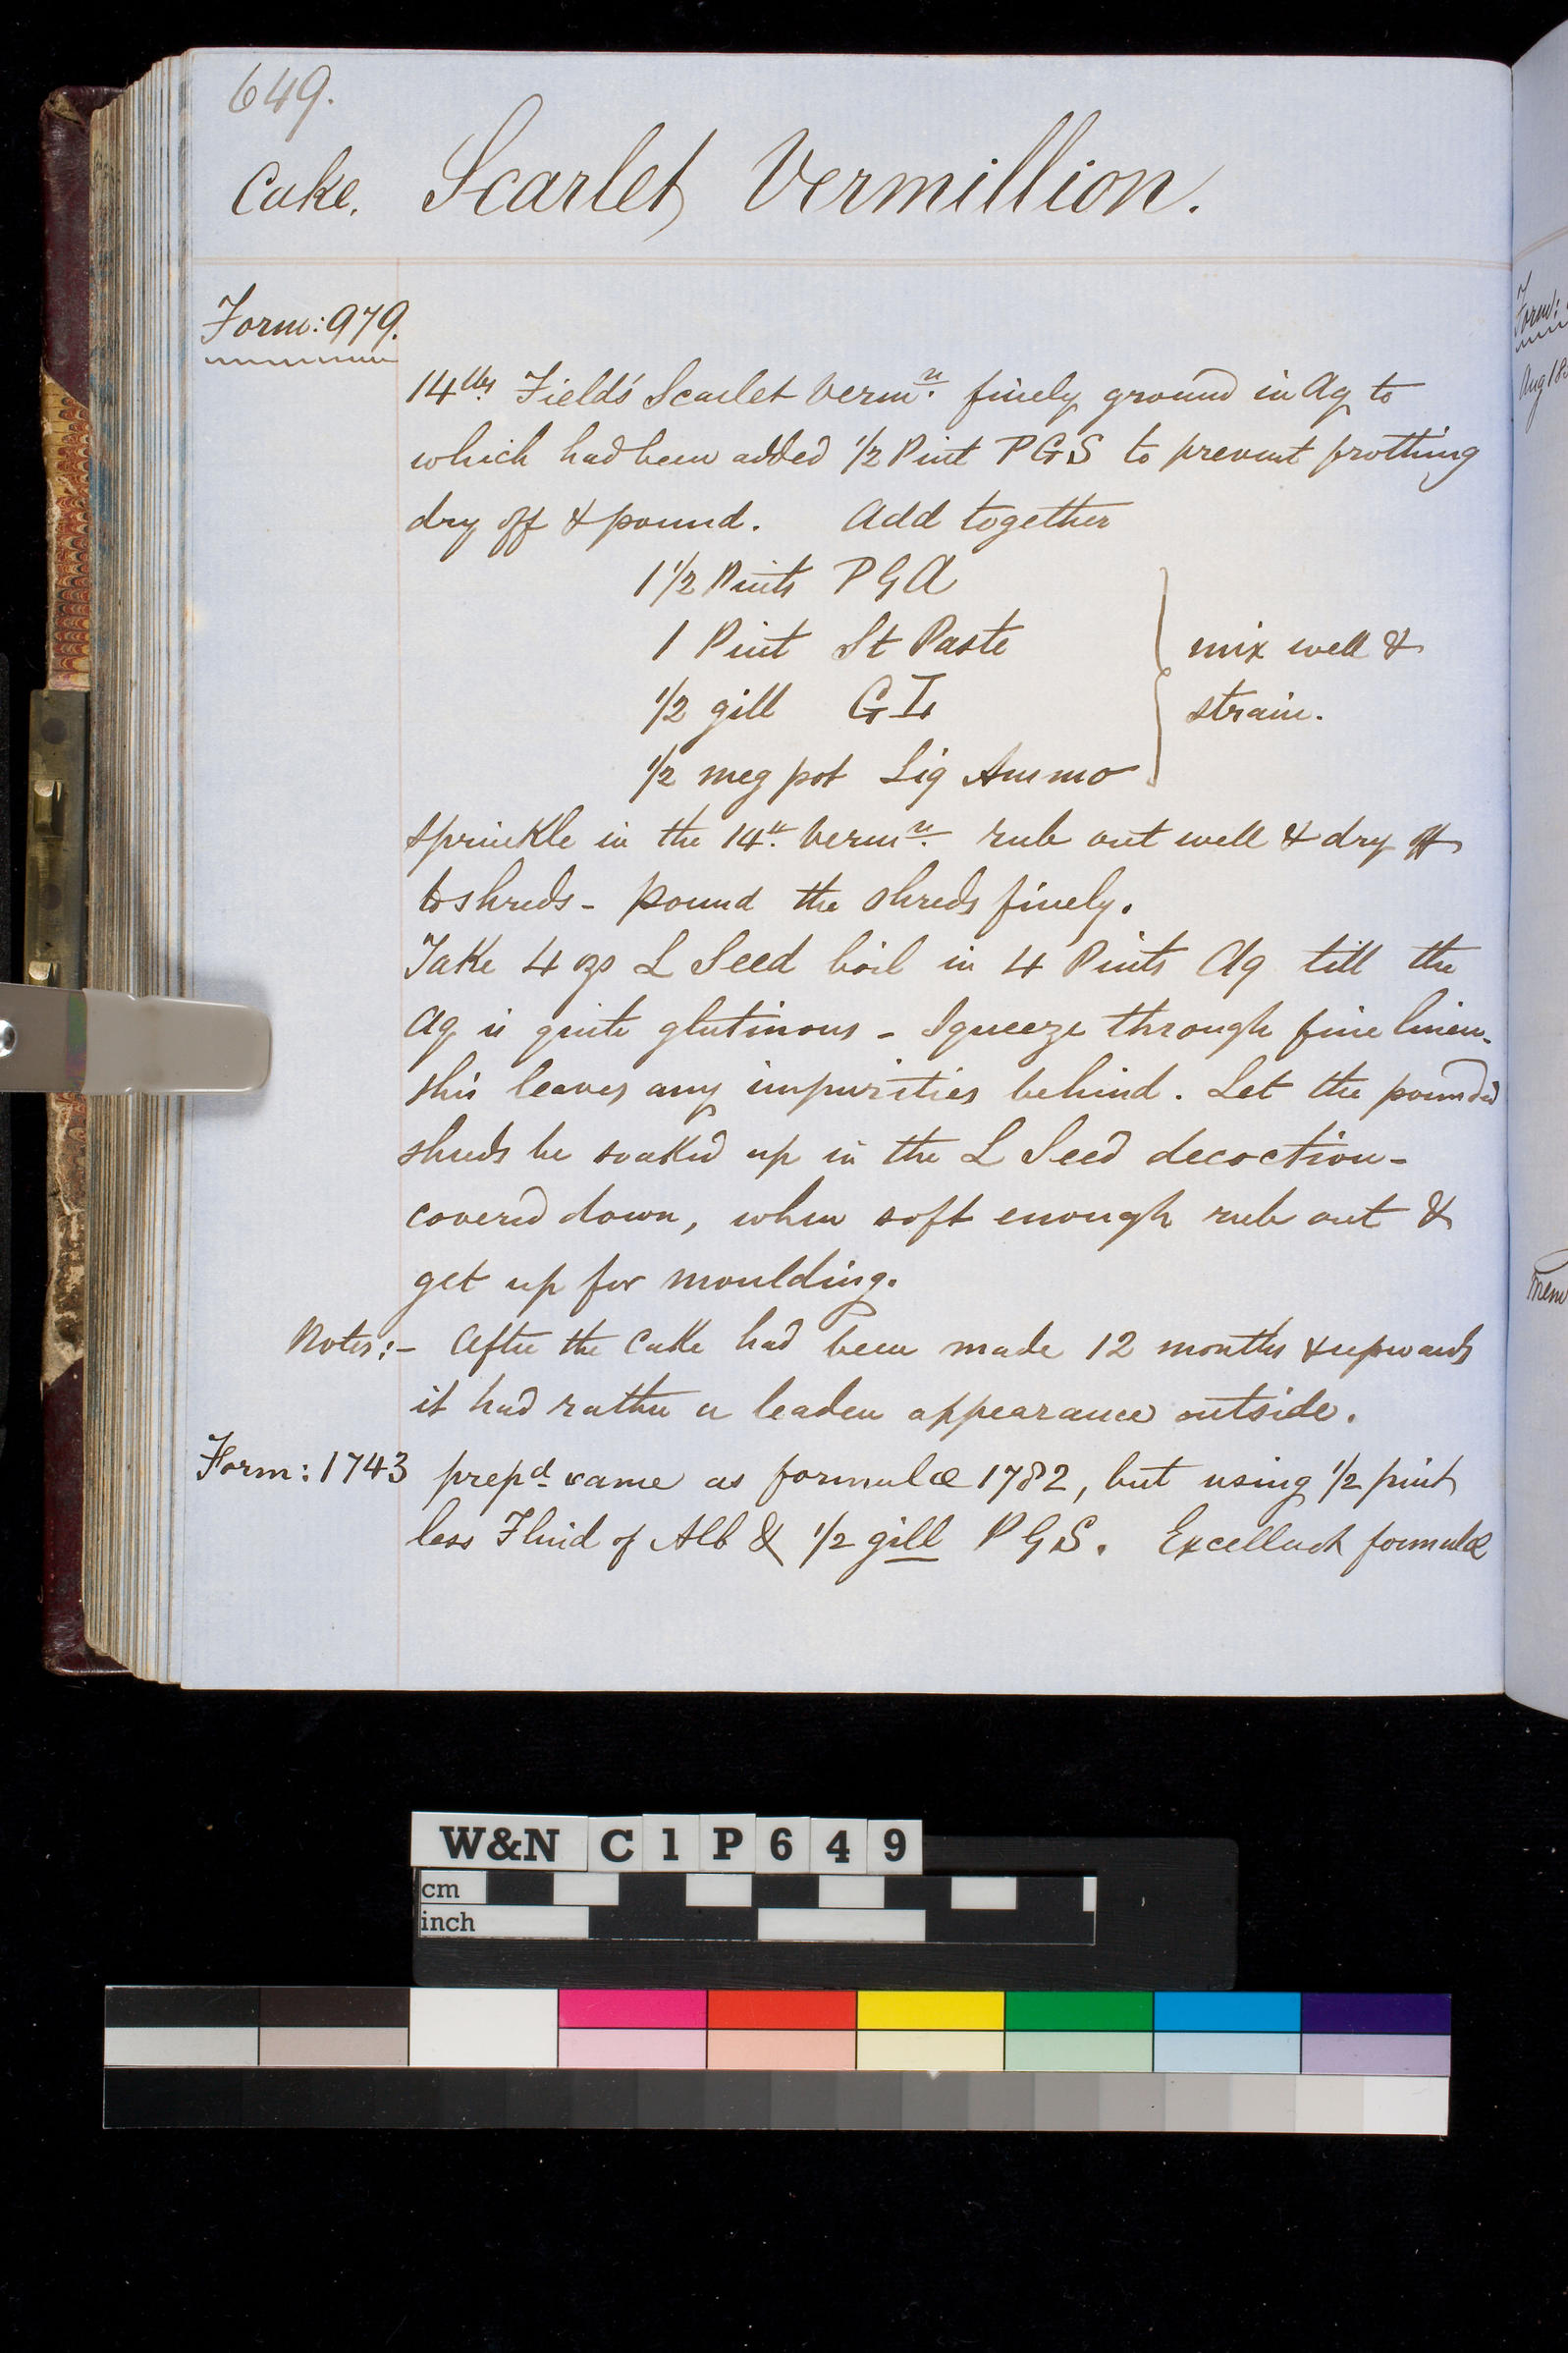 649.
Cake. Scarlet Vermillion.
Form: 979.
14 lbs Field's Scarlet Verm<sup>n</sup>. finely ground in Aq to
which had been added 1/2 Pint PGS to prevent frothing
dry off & pound. Add together
1 1/2 Pints PGA
1 Pint St Paste
mix well &
1/2 gill G
strain.
1/2 meg pot Liq Ammo
sprinkle in the 14 Verm<sup>n</sup>. rub out well & dry off
to shreds - pound the shreds finely.
Take 4 ozs L Seed boil in 4 Pints Aq till the
Aq is quite glutinous - Squeeze through fine linen.
this leaves any impurities behind. Let the pounded
shreds be soaked up in the L Seed decoction -
covered down, when soft enough rub out &
get up for moulding.
Notes:- After the Cake had been made 12 months & upwards
it had rather a leaden appearance outside.
Form: 1743 prep<sup>d</sup> same as formulæ 1782, but using 1/2 pint
less Fluid of Alb & 1/2 gill PGS. Excellent formulæ
Form:
Aug 18
Mem
W&N C1P649
cm
inch